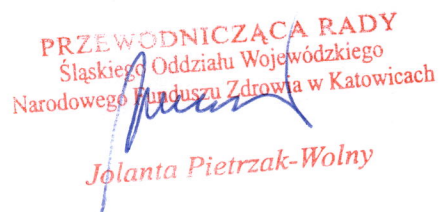 PRZEWODNICZĄCA RADY
Śląskiego Oddziału Wojewódzkiego
Narodowego Funduszu Zdrowia w Katowicach
Jolanta Pietrzak-Wolny